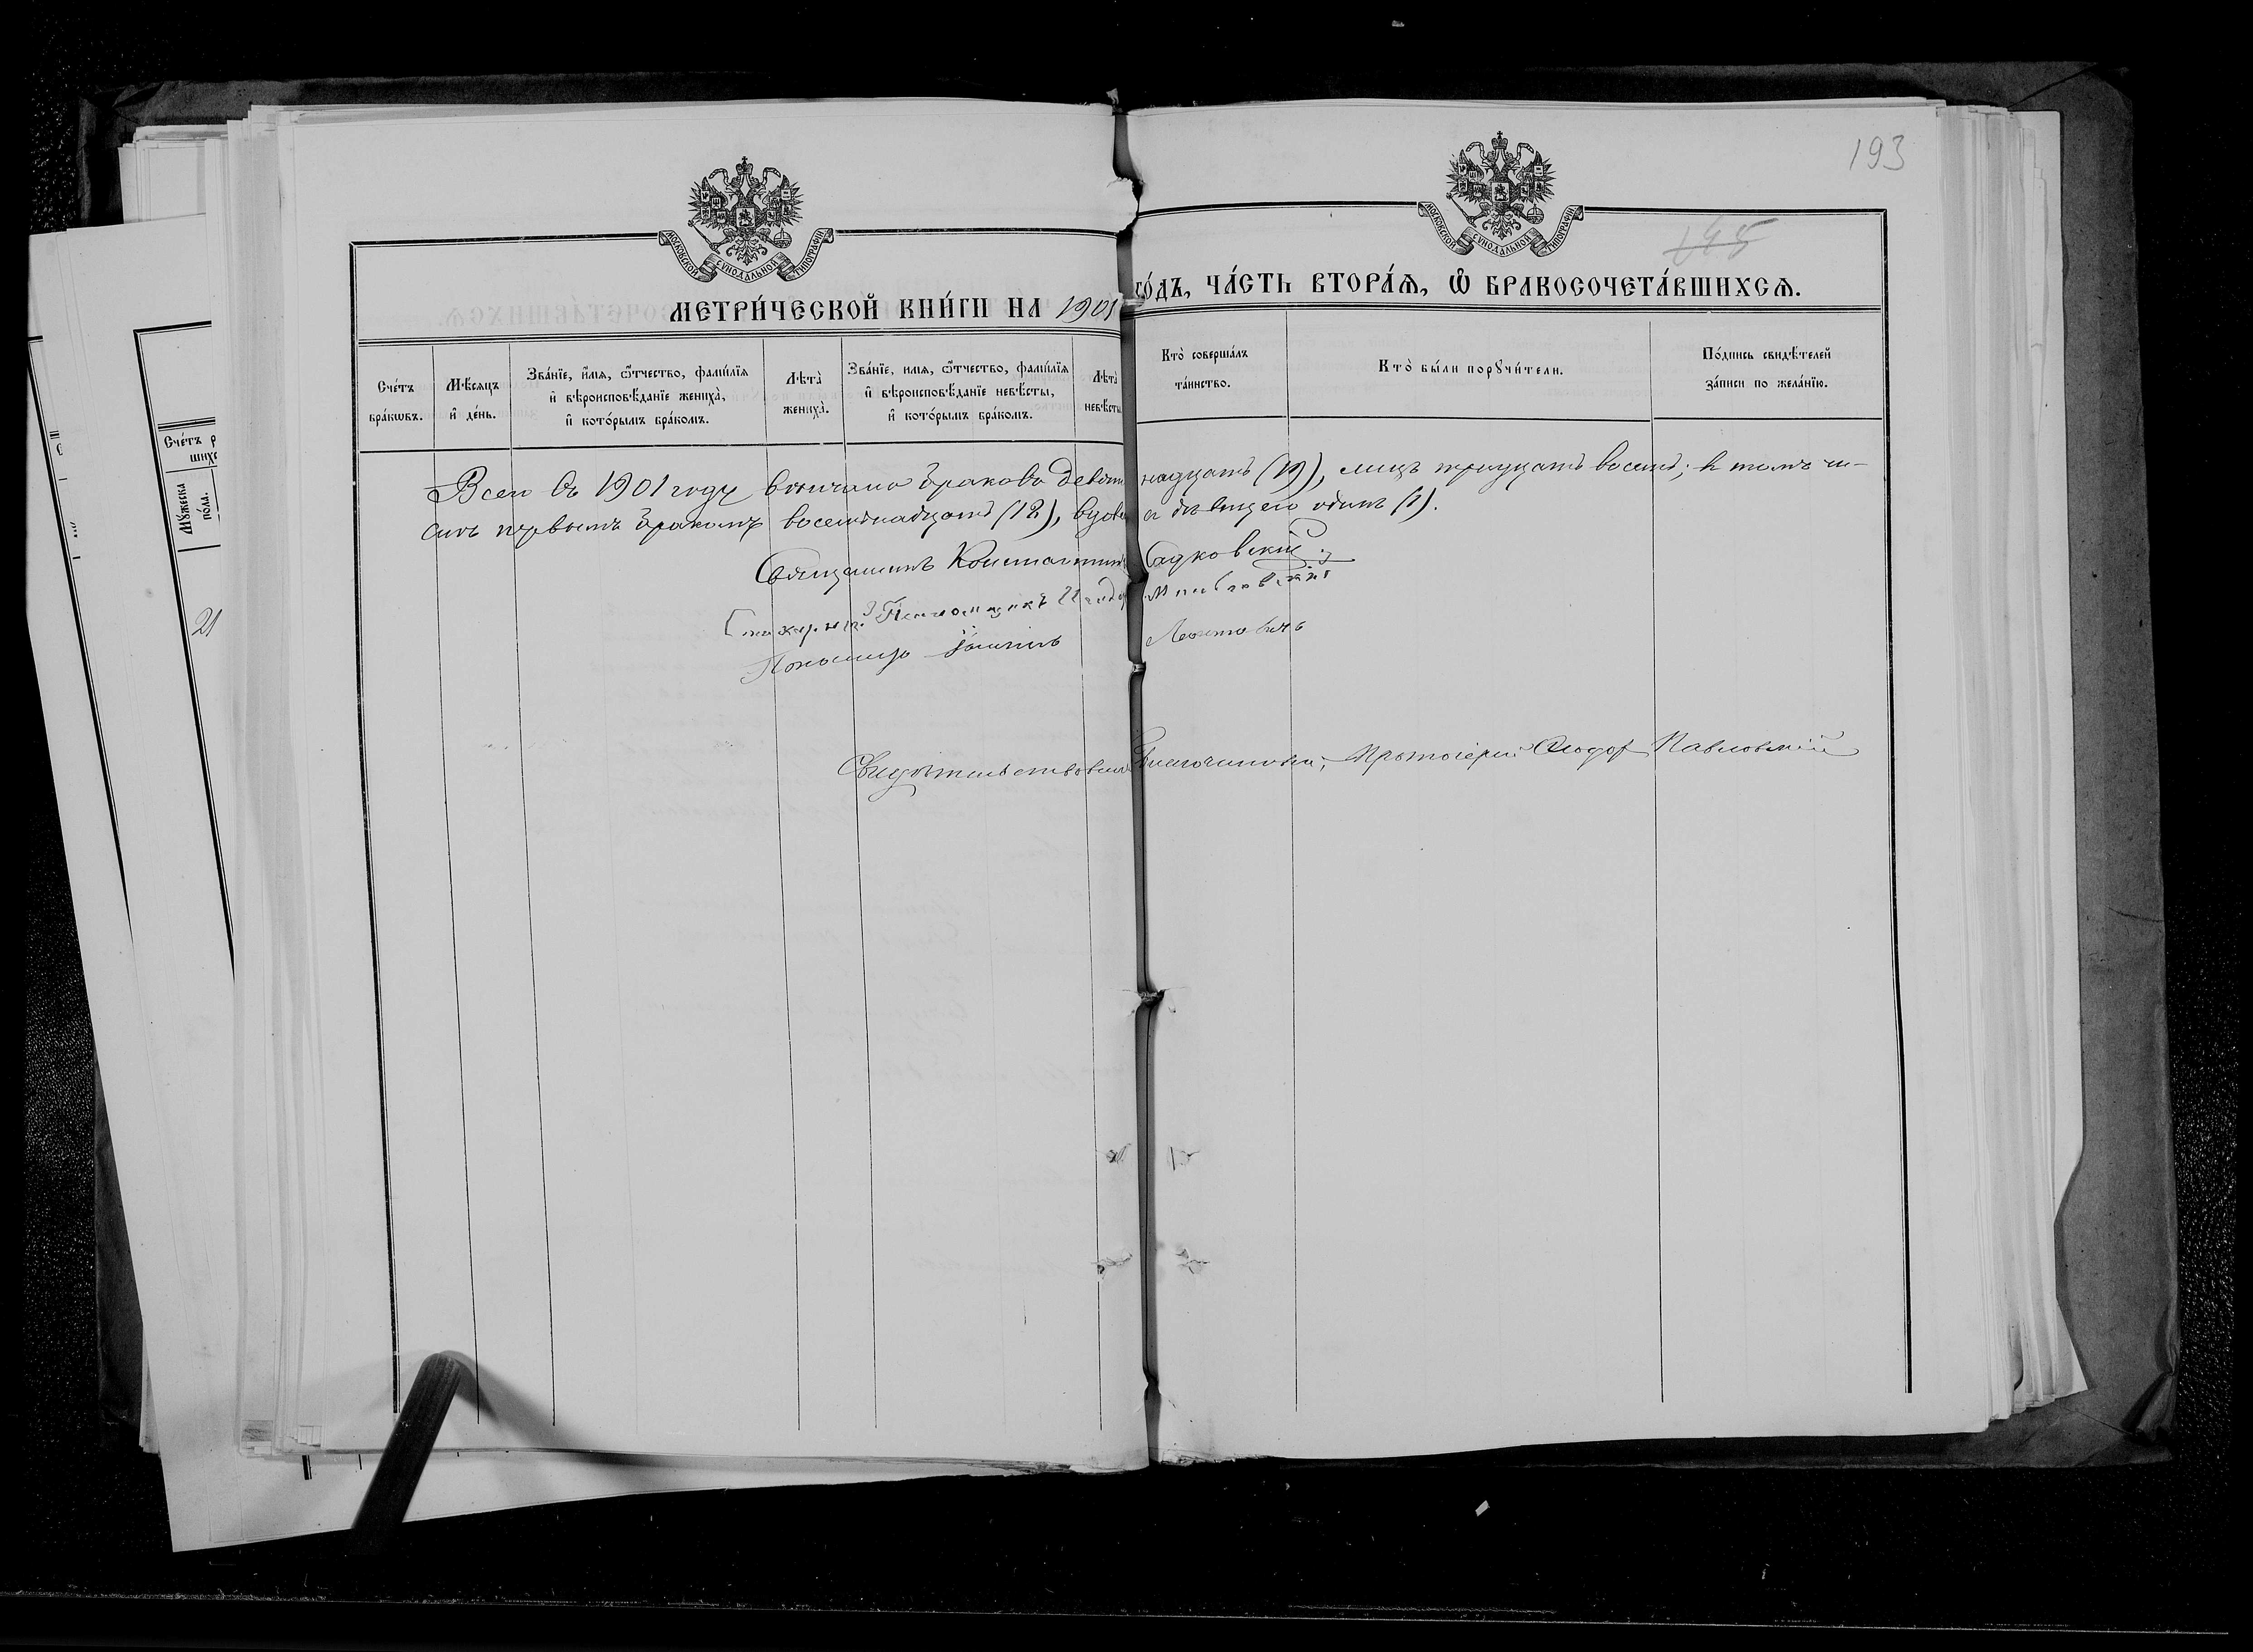 193
МОСКОВСКОЙ СѴНОДАЛЬНОЙ ТИПОГРАФІИ
МОСКОВСКОЙ СѴНОДАЛЬНОЙ ТИПОГРАФІИ
145
МЕТРИ́ЧЕСКОЙ КНИ́ГИ НА 1901 ГО́ДЪ, ЧА́СТЬ ВТОРА́Ѧ, Ѡ҆ БРАКОСОЧЕТА́ВШИХСѦ.
Сче́тъ бра́кѡвъ.
Мѣ́сѧцъ и҆ де́нь.
Зва́нїе, и҆́мѧ, ѻ҆́тчество, фами́лїѧ и҆ вѣроисповѣ́данїе жениха̀, и҆ кото́рымъ бра́комъ.
Лѣ́та̀ жениха̀.
Зва́нїе, имѧ, ѻ҆́тчество, фами́лїѧ и҆ вѣроисповѣ́данїе невѣ́сты, и҆ кото́рымъ бра́комъ.
Лѣ́та̀ невѣ́сты
Кто̀ соверша́лъ та́инство.
Кто̀ бы́ли порꙋчи́тели.
По́дпись свидѣ́телей за́писи по жела́нїю.
Всего въ 1901 году вѣнчано браковъ девятнадцать (19), лицъ тридцать восемь; въ томъ чи-
слѣ первымъ бракомъ восемнадцать (18), вдовец съ дѣвицею одинъ (1).
Священникъ Константинъ Садковскій
Псаломщикъ
Пономарь Леонтовичъ
Свидѣтельствовалъ Благочинный, Протоіерей Ѳеодоръ Павловскій
Сче́тъ р
шихс
Мꙋ́жеска по́ла.
21